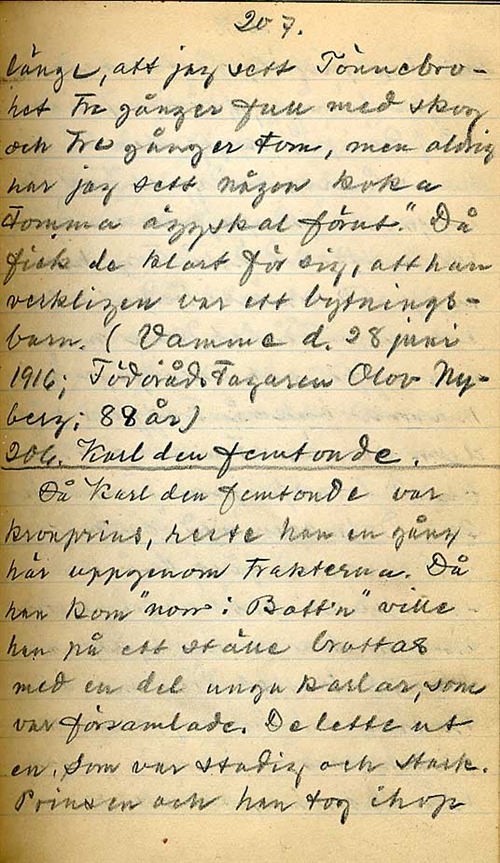 207.
länge, att jag sett Tönnebro-
het tre gånger full med skog
och tre gånger tom, men aldrig
har jag sett någon koka
tomma äggskal förut." Då
fick de klart för sig, att han
verkligen var ett bytnings-
barn. (Vamme d. 28 juni
1916; Födorådstagaren Olov Ny-
berg; 88 år)
206. Karl den femtonde.
Då Karl den femtonde var
kronprins, reste han en gång
här uppgenom trakterna. Då
han kom "norr i Bott'n" ville
han på ett ställe brottas
med en del unga karlar, som
var församlade. De lette ut
en, som var stadig och stark.
Prinsen och han tog ihop